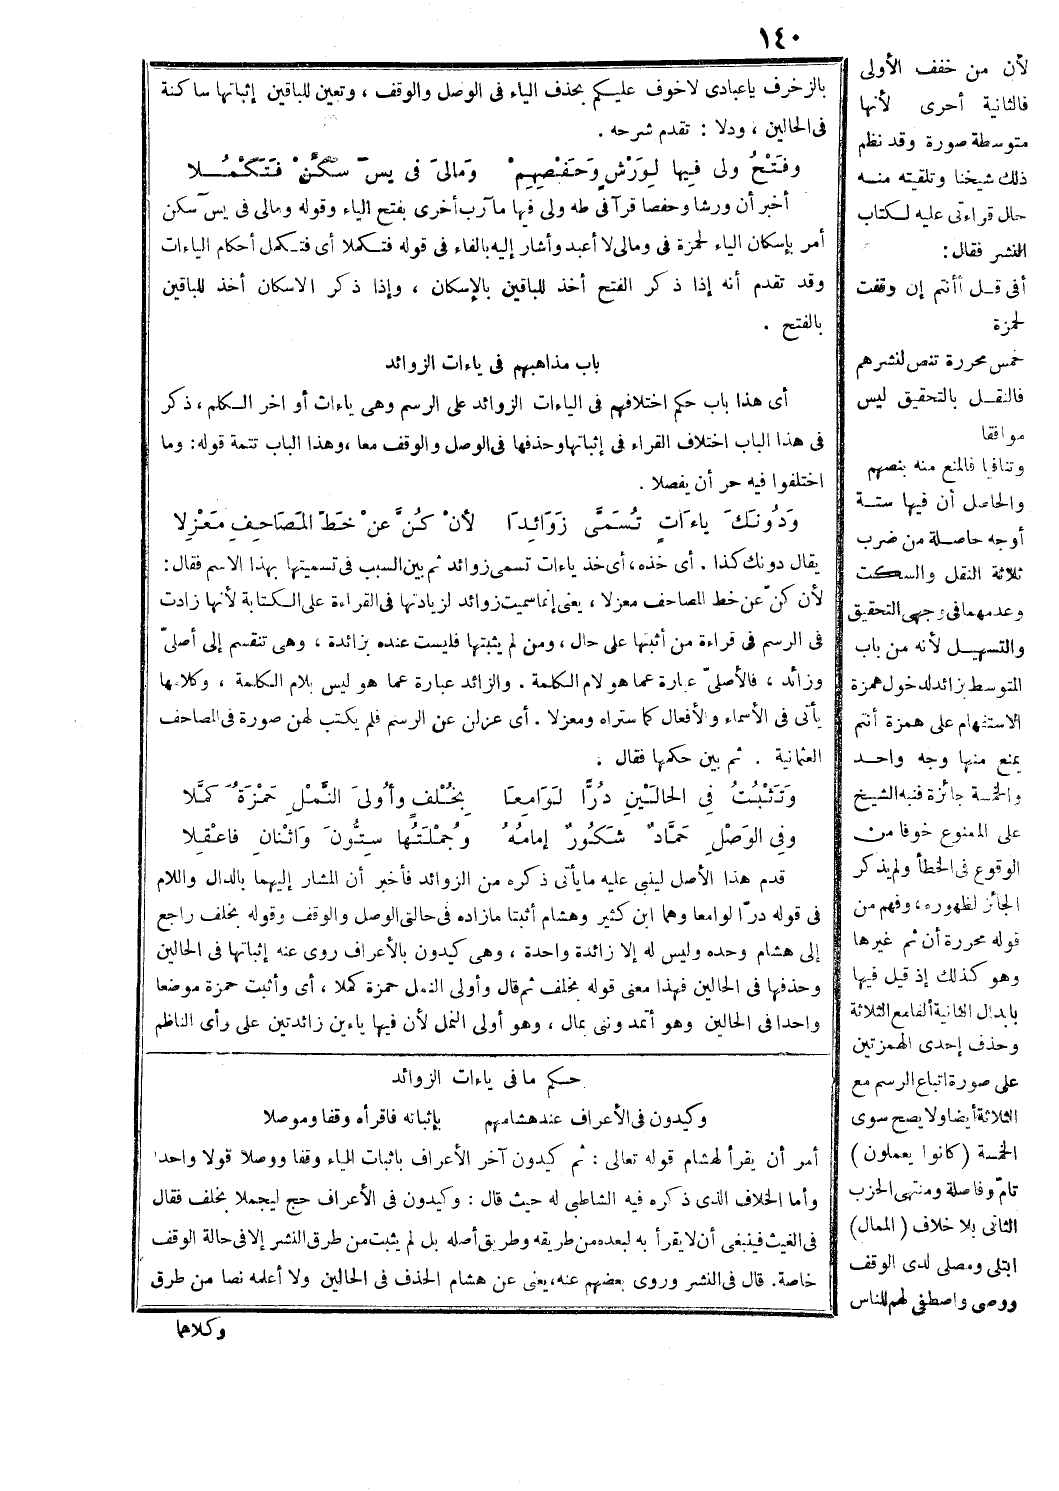 ١٤٠
بالزخرف ياعبادى لاخوف عليكم بحذف الياء فى الوصل والوقف ، وتعين للباقين إثباتها ساكنة
فى الحالين ، ودلا : تقدم شرحه .
وفَتْحُ ولى فِيها لِوَرْشٍ وَحَفْصِهِمْ وَمَالىَ فى يسٓ سَكِّنْ فَتَكْمُلا
أخبر أن ورشا وحفصا قرآ فى طه ولى فيها مآرب أخرى بفتح الياء وقوله ومالى فى يسٓ سكن
أمر بإسكان الياء لحمزة فى ومالى لا أعبد وأشار إليه بالفاء فى قوله فتكملا أى فتكمل أحكام الياءات
وقد تقدم أنه إذا ذكر الفتح أخذ للباقين بالإسكان ، وإذا ذكر الاسكان أخذ للباقين
بالفتح .
باب مذاهبهم فى ياءات الزوائد
أى هذا باب حكم اختلافهم فى الياءات الزوائد على الرسم وهى ياءات أواخر الكلم ، ذكر
فى هذا الباب اختلاف القراء فى إثباتها وحذفها فى الوصل والوقف معا ، وهذا الباب تتمة قوله : وما
اختلفوا فيه حر أن يفصلا .
وَدُونَكَ ياءَاتٍ تُسَمَّى زَوَائِدَا لأنْ كُنَّ عَنْ خَطِّ المَصَاحِفِ مَعْزِلا
يقال دونك كذا . أى خذه ، أى خذ ياءات تسمى زوائد ثم بين السبب فى تسميتها بهذا الاسم فقال :
لأن كنّ عن خط المصاحف معزلا ، يعنى إنما سميت زوائد لزيادتها فى القراءة على الكتابة لأنها زادت
فى الرسم فى قراءة من أثبتها على حال ، ومن لم يثبتها فليست عنده بزائدة ، وهى تنقسم إلى أصلىّ
وزائد ، فالأصلىّ عبارة عما هو لام الكلمة . والزائد عبارة عما هو ليس بلام الكلمة ، وكلاهما
يأتى فى الأسماء والأفعال كما ستراه ومعزلا . أى عزلن عن الرسم فلم يكتب لهن صورة فى المصاحف
العثمانية . ثم بين حكمها فقال .
وَتَثْبُتُ فِى الحَالَيْنِ دُرًّا لَوَامِعَا بِخُلْفٍ وأُولىَ النَّمْلِ حَمْزَةُ كَمَّلا
وفِى الوَصْلِ حَمَّادٌ شَكُورٌ إمامُهُ وجُمْلَتُها سِتُّونَ وَاثْنانِ فاعْقِلا
قدم هذا الأصل لينبى عليه مايأتى ذكره من الزوائد فأخبر أن المشار إليهما بالدال واللام
فى قوله درّا لوامعا وهما ابن كثير وهشام أثبتا مازاده فى حالتى الوصل والوقف وقوله بخلف راجع
إلى هشام وحده وليس له إلا زائدة واحدة ، وهى كيدون بالأعراف روى عنه إثباتها فى الحالين
وحذفها فى الحالين فهذا معنى قوله بخلف ثم قال وأولى النمل حمزة كملا ، أى وأثبت حمزة موضعا
واحدا فى الحالين وهو أتمد وننى بمال ، وهو أولى النمل لأن فيها ياءين زائدتين على رأى الناظم
حكم ما فى ياءات الزوائد
وكيدون فى الأعراف عند هشامهم بإثباته فاقرأه وقفا وموصلا
أمر أن يقرأ لهشام قوله تعالى : ثم كيدون آخر الأعراف باثبات الياء وقفا ووصلا قولا واحدا
وأما الخلاف الذى ذكره فيه الشاطبى له حيث قال : وكيدون فى الأعراف حج ليجملا بخلف فقال
فى الغيث فينبغى أن لا يقرأ به لبعده من طريقه وطريق أصله بل لم يثبت من طرق النشر إلا فى حالة الوقف
خاصة . قال فى النشر وروى بعضهم عنه ، يعنى عن هشام الحذف فى الحالين ولا أعلمه نصا من طرق
وكلاهما
لأن من خفف الأولى
فالثانية أحرى لأنها
متوسطة صورة وقد نظم
ذلك شيخنا وتلقيته منه
حال قراءتى عليه لكتاب
النشر فقال :
أفى قل أأنتم إن وقفت
لحمزة
خمس محررة تنص لنشرهم
فالنقل بالتحقيق ليس
موافقا
وتنافيا فالمنع منه بنصهم
والحاصل أن فيها ستة
أوجه حاصلة من ضرب
ثلاثة النقل والسكت
وعدمهما فى وجهى التحقيق
والتسهيل لأنه من باب
المتوسط بزائد لدخول همزة
الاستفهام على همزة أنتم
يمنع منها وجه واحد
والخمسة جائزة فنبه الشيخ
على الممنوع خوفا من
الوقوع فى الخطأ ولم يذكر
الجائز لظهوره ، وفهم من
قوله محررة أن ثم غيرها
وهو كذلك إذ قيل فيها
بابدال الثانية ألفا مع الثلاثة
وحذف إحدى الهمزتين
على صورة اتباع الرسم مع
الثلاثة أيضا ولا يصح سوى
الخمسة (كانوا يعملون)
تامّ وفاصلة ومنتهى الحزب
الثانى بلا خلاف (الممال)
ابتلى ومصلى لدى الوقف
ووصى واصطفى لهم للناس